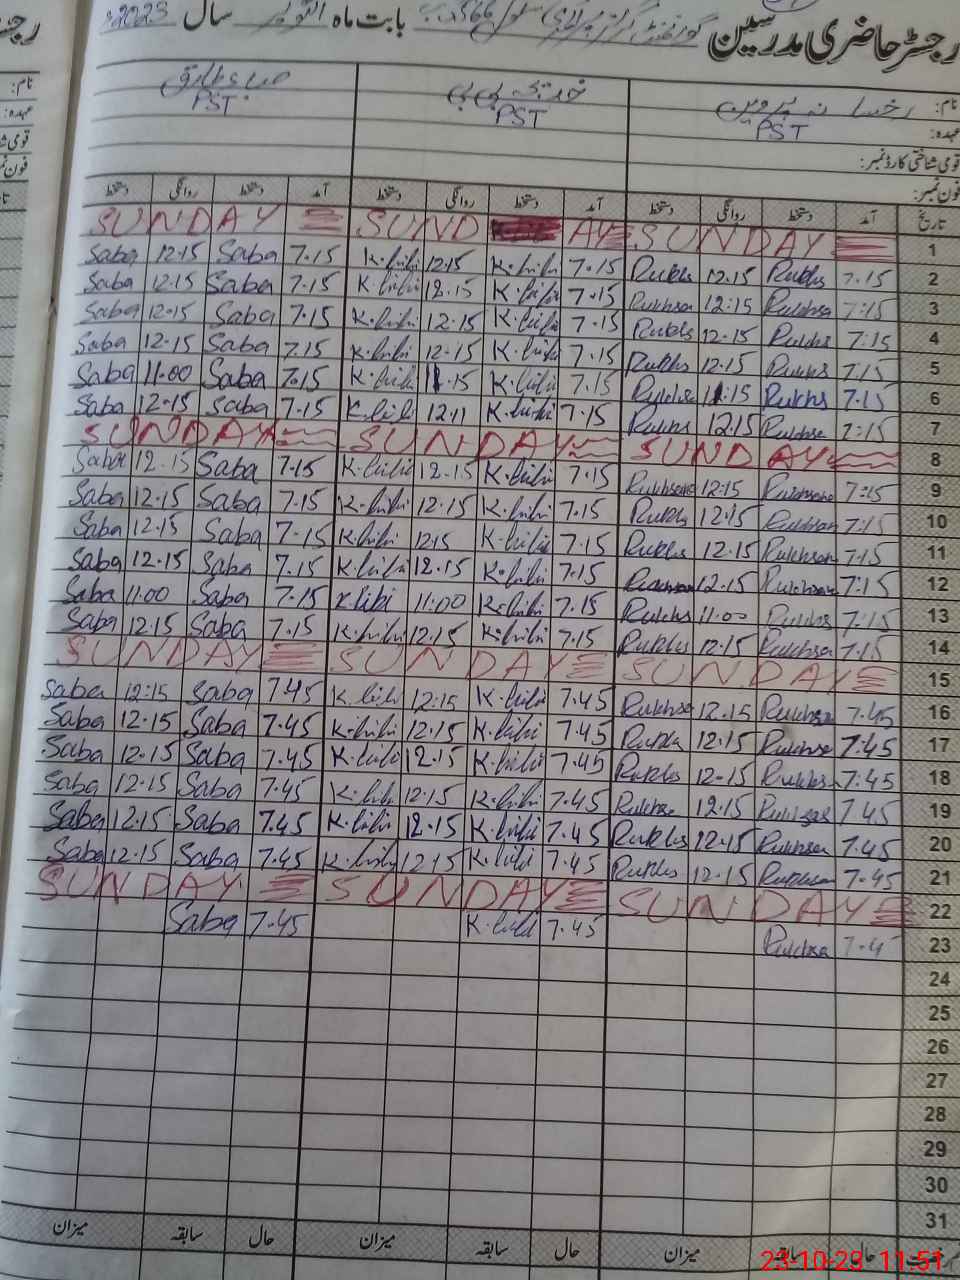 رجسٹر حاضری مدرسین گورنمنٹ گرلز پرائمری سکول 566 گ ب بابت ماہ اکتوبر سال 2023
نام: رخسانہ پروین خدیجہ بی بی صباء طارق
عہدہ: PST PST PST
قومی شناختی کارڈ نمبر:
فون نمبر:
تاریخ آمد دستخط روانگی دستخط آمد دستخط روانگی دستخط آمد دستخط روانگی دستخط
SUNDAY SUND AY SUNDAY 1
Saba 12.15 Saba 7.15 K.bibi 12.15 K.bibi 7.15 Rukhs 12.15 Rukhs 7.15 2
Saba 12.15 Saba 7.15 K.bibi 12.15 K.bibi 7.15 Rukhsa 12:15 Rukhsa 7:15 3
Saba 12.15 Saba 7.15 K.bibi 12.15 K.bibi 7.15 Rukhs 12.15 Rukhs 7:15 4
Saba 12.15 Saba 7.15 K.bibi 12.15 K.bibi 7.15 Rukhs 12.15 Rukhs 7.15 5
Saba 11.00 Saba 7.15 K.bibi 11.15 K.bibi 7.15 Rukhsa 11.15 Rukhs 7.15 6
Saba 12.15 Saba 7.15 K.bibi 12.11 K.bibi 7.15 Rukhs 12.15 Rukhsa 7:15 7
SUNDAY SUNDAY SUNDAY 8
Saba 12.15 Saba 7.15 K.bibi 12.15 K.bibi 7.15 Rukhsana 12:15 Rukhsana 7:15 9
Saba 12.15 Saba 7.15 K.bibi 12.15 K.bibi 7.15 Rukhs 12:15 Rukhsan 7:15 10
Saba 12.15 Saba 7.15 K.bibi 12.15 K.bibi 7.15 Rukhs 12.15 Rukhsan 7:15 11
Saba 12.15 Saba 7.15 K.bibi 12.15 K.bibi 7.15 12.15 Rukhsan 7:15 12
Saba 11.00 Saba 7.15 K.bibi 11:00 K.bibi 7.15 Rukhs 11.00 Rukhs 7:15 13
Saba 12.15 Saba 7.15 K.bibi 12.15 K.bibi 7.15 Rukhs 12.15 Rukhsa 7.15 14
SUNDAY SUNDAY SUNDAY 15
Saba 12:15 Saba 7.45 K.bibi 12.15 K.bibi 7.45 Rukhsa 12.15 Rukhsa 7.45 16
Saba 12.15 Saba 7.45 K.bibi 12.15 K.bibi 7.45 Rukhs 12.15 Rukhsa 7:45 17
Saba 12.15 Saba 7.45 K.bibi 12.15 K.bibi 7.45 Rukhs 12.15 Rukhs 7.45 18
Saba 12.15 Saba 7.45 K.bibi 12.15 K.bibi 7.45 Rukhsa 12.15 7.45 19
Saba 12.15 Saba 7.45 K.bibi 12.15 K.bibi 7.45 Rukhs 12.15 Rukhsa 7.45 20
Saba 12.15 Saba 7.45 K.bibi 12.15 K.bibi 7.45 Rukhs 12.15 Rukhsa 7.45 21
SUNDAY SUNDAY SUNDAY 22
Saba 7.45 K.bibi 7.45 Rukhsa 7.4 23
24
25
26
27
28
29
30
31
حال سابقہ میزان حال سابقہ میزان حال سابقہ میزان
23-10-23 11:51